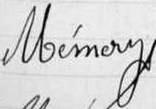 Mémery,